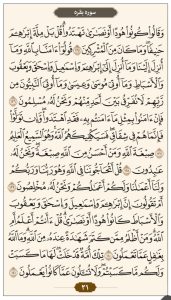 سوره بقره
وَقَالُوا۟ كُونُوا۟ هُودًا أَوْ نَصَٰرَىٰ تَهْتَدُوا۟ قُلْ بَلْ مِلَّةَ إِبْرَٰهِۧمَ
حَنِيفًا وَمَا كَانَ مِنَ ٱلْمُشْرِكِينَ ۝١٣٥ قُولُوٓا۟ ءَامَنَّا بِٱللَّهِ وَمَآ
أُنزِلَ إِلَيْنَا وَمَآ أُنزِلَ إِلَىٰٓ إِبْرَٰهِۧمَ وَإِسْمَٰعِيلَ وَإِسْحَٰقَ وَيَعْقُوبَ
وَٱلْأَسْبَاطِ وَمَآ أُوتِىَ مُوسَىٰ وَعِيسَىٰ وَمَآ أُوتِىَ ٱلنَّبِيُّونَ مِن
رَّبِّهِمْ لَا نُفَرِّقُ بَيْنَ أَحَدٍ مِّنْهُمْ وَنَحْنُ لَهُۥ مُسْلِمُونَ ۝١٣٦
فَإِنْ ءَامَنُوا۟ بِمِثْلِ مَآ ءَامَنتُم بِهِۦ فَقَدِ ٱهْتَدَوا۟ وَّإِن تَوَلَّوْا۟
فَإِنَّمَا هُمْ فِى شِقَاقٍ فَسَيَكْفِيكَهُمُ ٱللَّهُ وَهُوَ ٱلسَّمِيعُ ٱلْعَلِيمُ ۝١٣٧
صِبْغَةَ ٱللَّهِ وَمَنْ أَحْسَنُ مِنَ ٱللَّهِ صِبْغَةً وَنَحْنُ لَهُۥ
عَٰبِدُونَ ۝١٣٨ قُلْ أَتُحَآجُّونَنَا فِى ٱللَّهِ وَهُوَ رَبُّنَا وَرَبُّكُمْ
وَلَنَآ أَعْمَٰلُنَا وَلَكُمْ أَعْمَٰلُكُمْ وَنَحْنُ لَهُۥ مُخْلِصُونَ ۝١٣٩
أَمْ تَقُولُونَ إِنَّ إِبْرَٰهِۧمَ وَإِسْمَٰعِيلَ وَإِسْحَٰقَ وَيَعْقُوبَ
وَٱلْأَسْبَاطَ كَانُوا۟ هُودًا أَوْ نَصَٰرَىٰ قُلْ ءَأَنتُمْ أَعْلَمُ أَمِ
ٱللَّهُ وَمَنْ أَظْلَمُ مِمَّن كَتَمَ شَهَٰدَةً عِندَهُۥ مِنَ ٱللَّهِ وَمَا ٱللَّهُ
بِغَٰفِلٍ عَمَّا تَعْمَلُونَ ۝١٤٠ تِلْكَ أُمَّةٌ قَدْ خَلَتْ لَهَا مَا كَسَبَتْ
وَلَكُم مَّا كَسَبْتُمْ وَلَا تُسْـَٔلُونَ عَمَّا كَانُوا۟ يَعْمَلُونَ ۝١٤١
۲۱